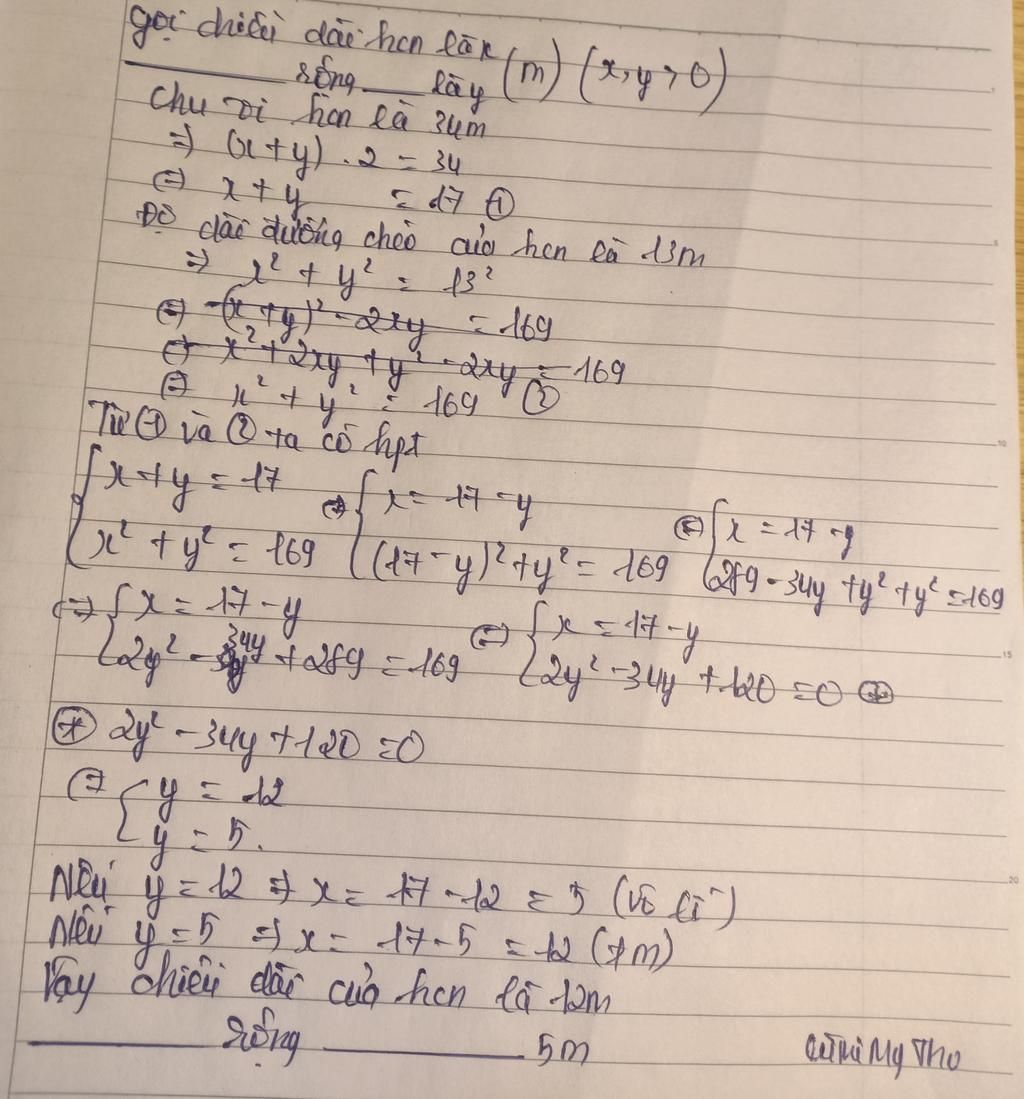 gọi chiều dài hcn là x (m) (x,y>0)
______ rộng ___ là y
Chu vi hcn là 34m
=> (x+y) . 2 = 34
<=> x + y = 17 ①
Độ dài đường chéo của hcn là 13m
=> x² + y² = 13²
<=> (x+y)² - 2xy = 169
<=> x² + 2xy + y² - 2xy = 169
<=> x² + y² = 169 ②
Từ ① và ② ta có hpt
{ x + y = 17 <=> { x = 17 - y <=> { x = 17 - y
x² + y² = 169 (17 - y)² + y² = 169 289 - 34y + y² + y² = 169
<=> { x = 17 - y <=> { x = 17 - y
2y² - 34y + 289 = 169 2y² - 34y + 120 = 0 (*)
(*) 2y² - 34y + 120 = 0
<=> { y = 12
y = 5.
Nếu y = 12 => x = 17 - 12 = 5 (vô lí)
Nếu y = 5 => x = 17 - 5 = 12 (tm)
Vậy chiều dài của hcn là 12m
______ rộng ______ 5m My Tho